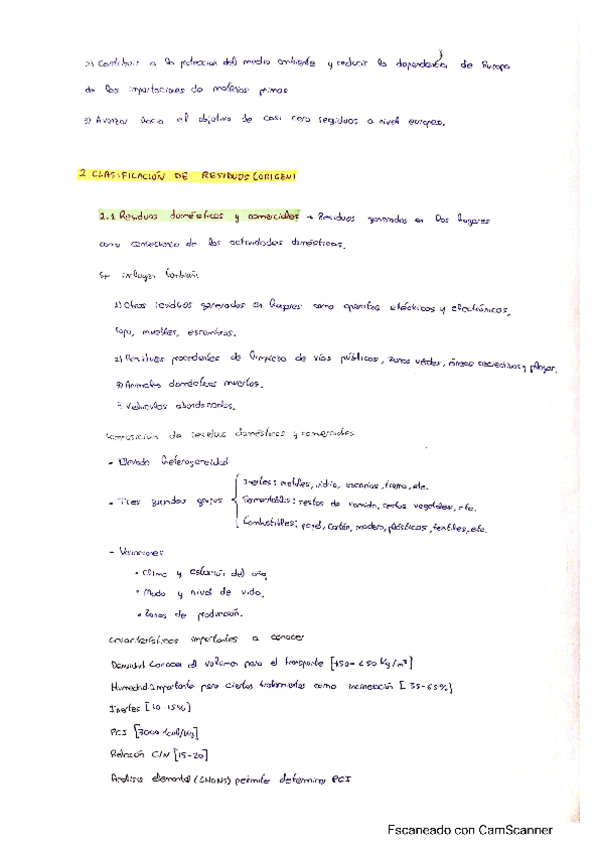 2) Contribuir a la protección del medio ambiente y reducir la dependencia de Europa
de las importaciones de materias primas
3) Avanzar hacia el objetivo de casi cero residuos a nivel europeo.
2 CLASIFICACIÓN DE RESIDUOS (ORIGEN)
2.1 Residuos domésticos y comerciales → Residuos generados en los hogares
como consecuencia de las actividades domésticas.
Se incluyen también:
1) Otros residuos generados en hogares como aparatos eléctricos y electrónicos,
ropa, muebles, escombros.
2) Residuos procedentes de limpieza de vías públicas, zonas verdes, áreas recreativas y playas.
3) Animales domésticos muertos.
4 Vehículos abandonados.
Composición de residuos domésticos y comerciales
- Elevada heterogeneidad
- Tres grandes grupos
Inertes: metales, vidrio, escorias, tierra, etc.
Fermentables: restos de comida, restos vegetales, etc.
Combustibles: papel, cartón, madera, plásticos, textiles, etc.
- Variaciones
• Clima y estación del año
• Modo y nivel de vida.
• Zonas de producción.
Características importantes a conocer
Densidad: conocer el volumen para el transporte [150-250 kg/m³]
Humedad: importante para ciertos tratamientos como incineración [35-65%]
Inertes [10-15%]
PCI
Relación C/N [15-20]
Análisis elemental (CHONS) permite determinar PCI
Escaneado con CamScanner